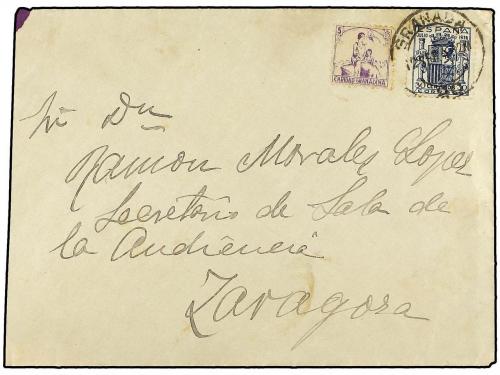 5 5
CARIDAD GRANADINA
GRANADA
ESPAÑA
Sr Dn
Ramon Morales Lopez
Secretario de Sala de
la Audiencia
Zaragoza